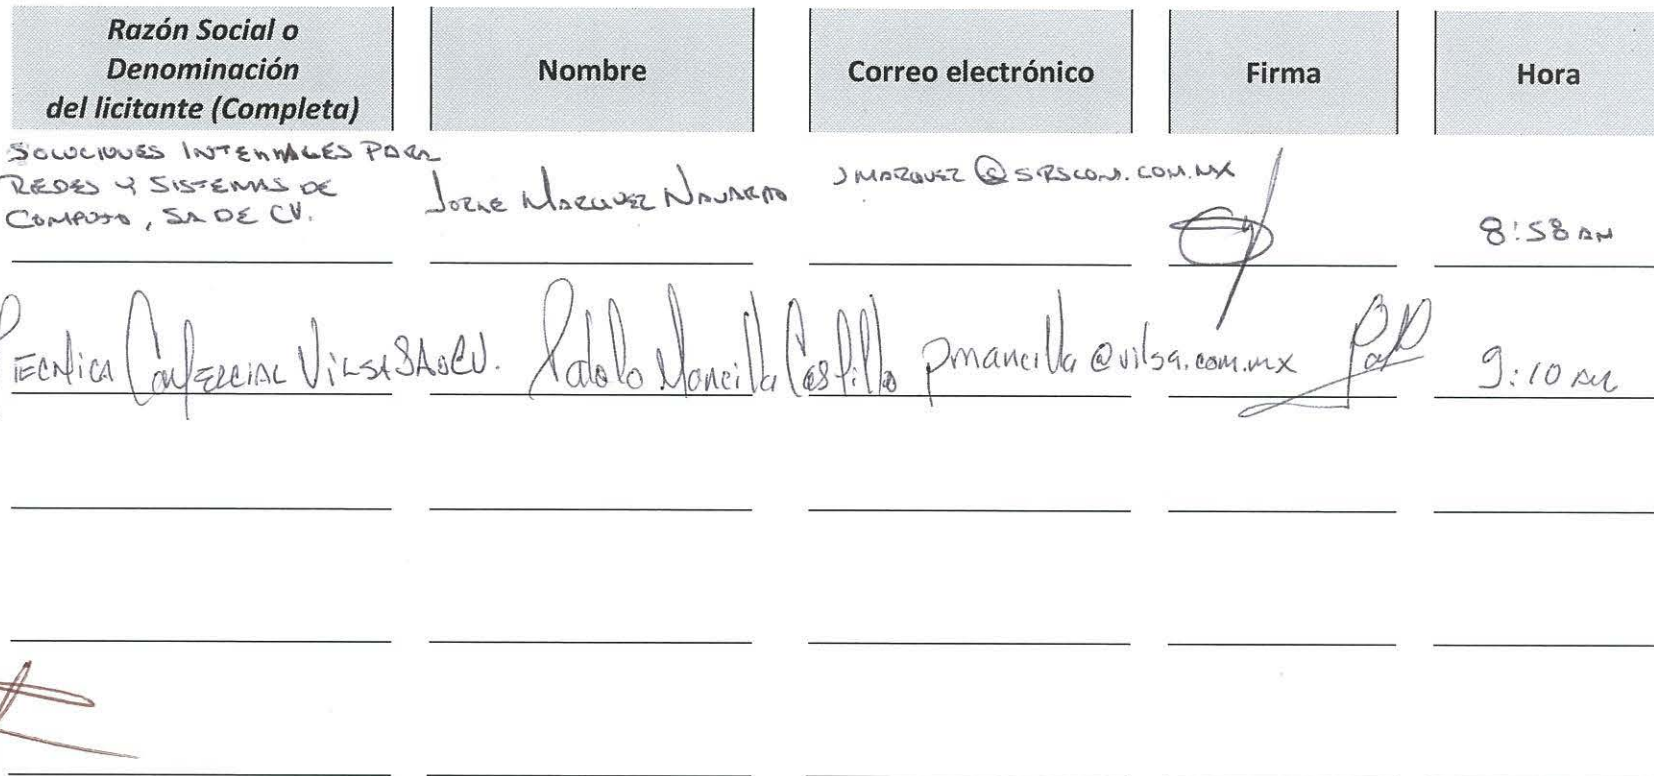 Razón Social o
Denominación
del licitante (Completa)
Nombre
Correo electrónico
Firma
Hora
SOLUCIONES INTEGRALES PARA
REDES Y SISTEMAS DE
COMPUTO, SA DE CV.
JORGE MARQUEZ NAVARRO
JMARQUEZ@SRSCOM.COM.MX
8:58 AM
TECNICA COMERCIAL VILSA SA DE CV.
Mancilla Castillo
pmancilla@vilsa.com.mx
9:10 AM